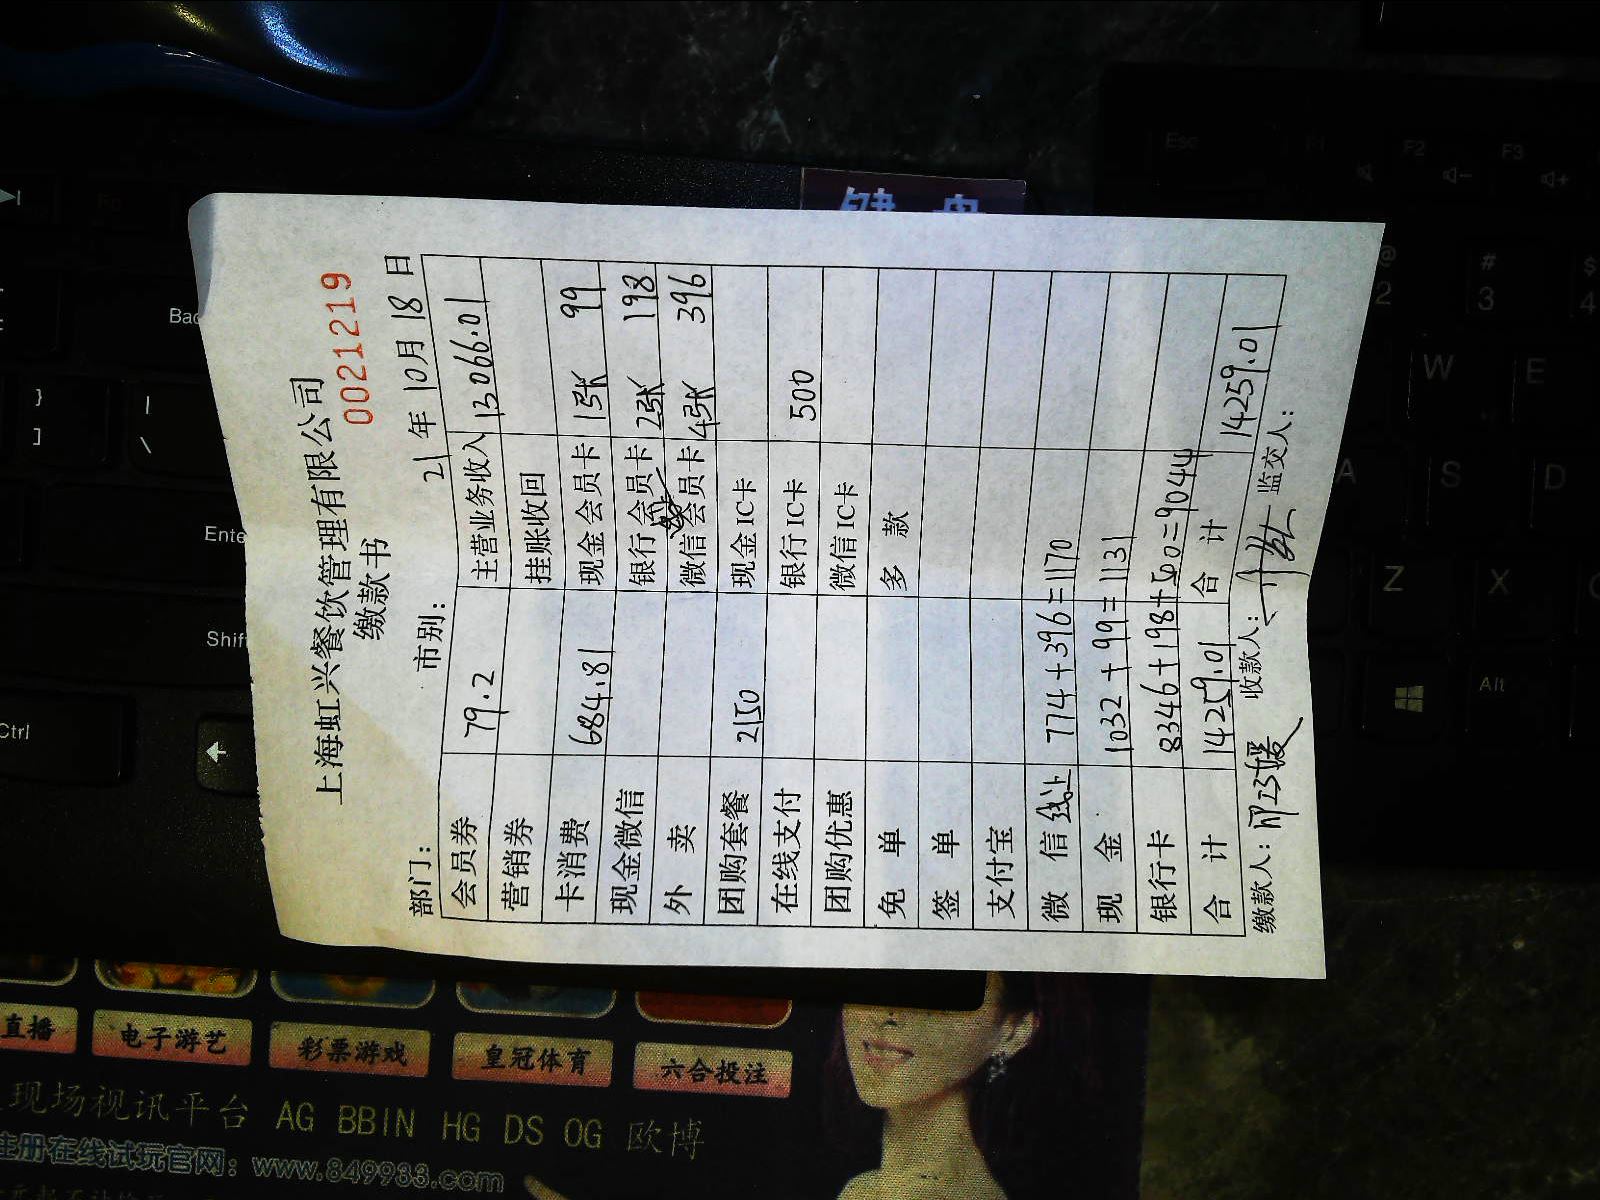 上海虹兴餐饮管理有限公司
缴款书 0021219
部门： 市别： 21年10月18日
会员券 79.2 主营业务收入 13066.01
营销券 挂账收回
卡消费 684.81 现金会员卡 1张 99
现金微信 银行会员卡 2张 198
外 卖 微信会员卡 4张 396
团购套餐 2150 现金IC卡
在线支付 银行IC卡 500
团购优惠 微信IC卡
免 单 多 款
签 单
支付宝
微 信 线上 774+396=1170
现 金 1032+99=1131
银行卡 8346+198+500=9044
合 计 14259.01 合 计 14259.01
缴款人： 收款人： 监交人：
键 盘
Esc F1 F2 F3
@ 2 # 3 $ 4
W E
A S D
Z X
Alt
Bac
} ]
| \
Ente
Shif
Ctrl
直播 电子游艺 彩票游戏 皇冠体育 六合投注
现场视讯平台 AG BBIN HG DS OG 欧博
注册在线试玩官网：www.849933.com